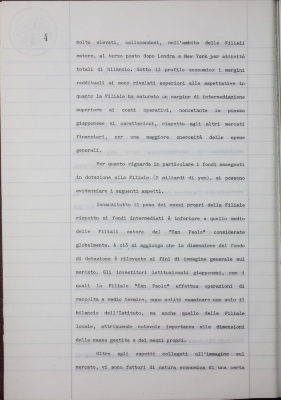 molto elevati, collocandosi, nell'ambito delle Filiali
estere, al terzo posto dopo Londra e New York per attività
totali di bilancio. Sotto il profilo economico i margini
reddituali si sono rivelati superiori alle aspettative in
quanto la Filiale ha maturato un margine di intermediazione
superiore ai costi operativi, nonostante la piazza
giapponese si caratterizzi, rispetto agli altri mercati
finanziari, per una maggiore onerosità delle spese
generali.
Per quanto riguarda in particolare i fondi assegnati
in dotazione alla Filiale (2 miliardi di yen), si possono
evidenziare i seguenti aspetti.
Innanzitutto il peso dei mezzi propri della Filiale
rispetto ai fondi intermediati è inferiore a quello medio
delle Filiali estere del "San Paolo" considerate
globalmente. A ciò si aggiunga che la dimensione del fondo
di dotazione è rilevante ai fini di immagine generale sul
mercato. Gli investitori istituzionali giapponesi, con i
quali la Filiale "San Paolo" effettua operazioni di
raccolta a medio termine, sono soliti esaminare non solo il
bilancio dell'Istituto, ma anche quello della Filiale
locale, attribuendo notevole importanza alle dimensioni
della massa gestita e dei mezzi propri.
Oltre agli aspetti collegati all'immagine sul
mercato, vi sono fattori di natura economica di una certa